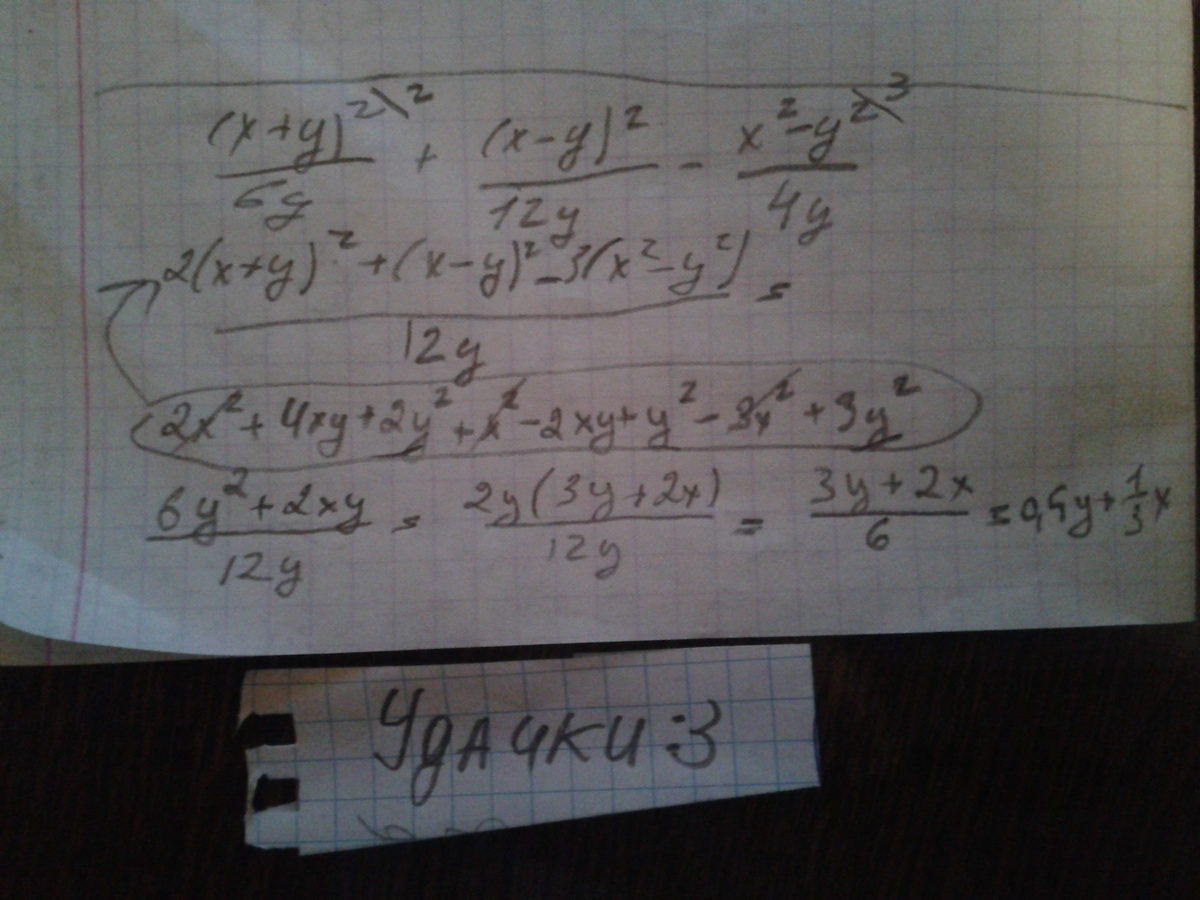 (x+y)²\² / 6y + (x-y)² / 12y - x²-y²\³ / 4y
2(x+y)²+(x-y)²-3(x²-y²) / 12y =
2x²+4xy+2y²+x²-2xy+y²-3x²+3y²
6y²+2xy / 12y = 2y(3y+2x) / 12y = 3y+2x / 6 = 0,5y+1/3x
Удачки :3